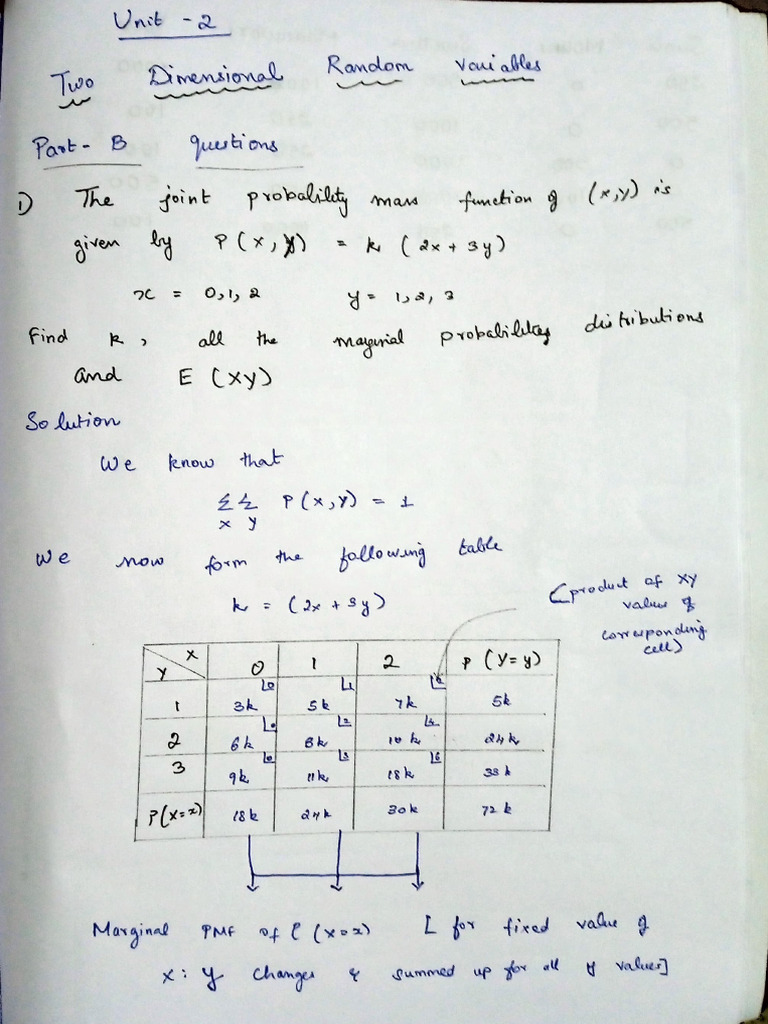 Unit - 2
Two Dimensional Random Variables
Part - B questions
1) The joint probability mass function of (x,y) is
given by P(x,y) = k (2x + 3y)
x = 0,1,2 y = 1,2,3
Find k, all the marginal probabilities distributions
and E (XY)
Solution
We know that
ΣΣ P(x,y) = 1
x y
We now form the following table
k = (2x + 3y)
(product of xy
value of
corresponding
cell)
Y X 0 1 2 P (Y=y)
1 3k 0 5k 1 7k 2 5k
2 6k 0 8k 2 10k 4 24k
3 9k 0 11k 3 13k 6 33k
P(X=x) 18k 24k 30k 72k
Marginal PMF of P (X=x) [ for fixed value of
x: y changes & summed up for all y values]